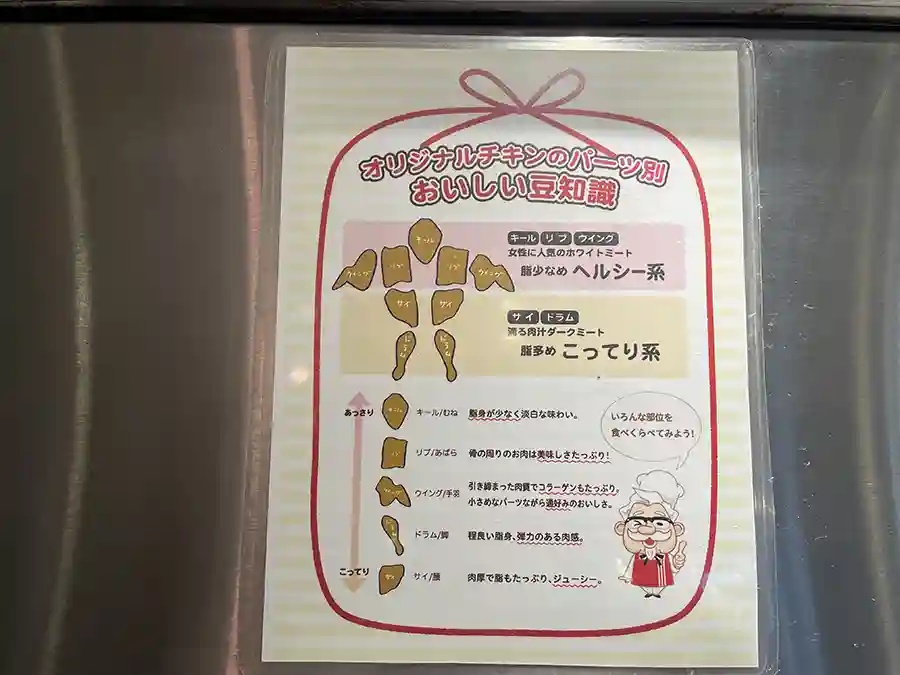 オリジナルチキンのパーツ別
おいしい豆知識
キール
ウイング
リブ
リブ
ウイング
サイ
サイ
ドラム
ドラム
キール リブ ウイング
女性に人気のホワイトミート
脂少なめ ヘルシー系
サイ ドラム
滴る肉汁ダークミート
脂多め こってり系
あっさり
キール
キール/むね
脂身が少なく淡白な味わい。
リブ
リブ/あばら
骨の周りのお肉は美味しさたっぷり!
ウイング
ウイング/手羽
引き締まった肉質でコラーゲンもたっぷり。
小さめなパーツながら通好みのおいしさ。
ドラム
ドラム/脚
程良い脂身、弾力のある肉感。
こってり
サイ
サイ/腰
肉厚で脂もたっぷり、ジューシー。
いろんな部位を
食べくらべてみよう!